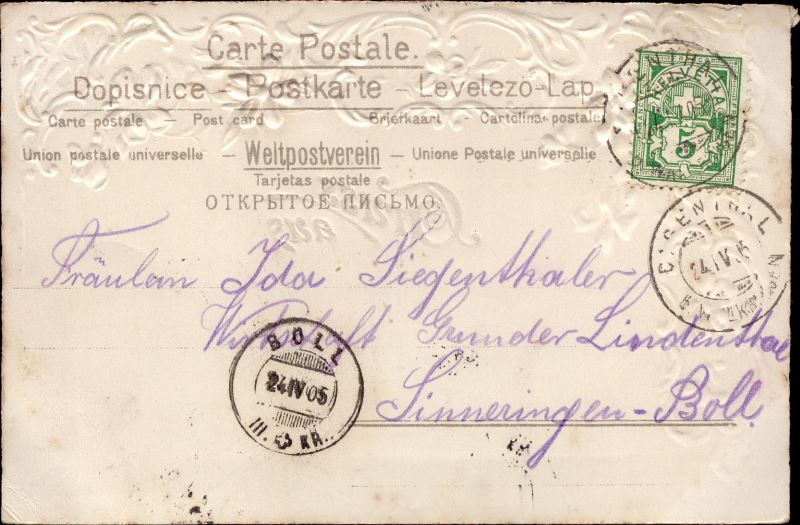 Carte Postale.
Dopisnice – Postkarte – Levelezö-Lap
Carte postale – Post card Briefkaart – Cartolina postale
Union postale universelle – Weltpostverein – Unione Postale universelle
Tarjetas postale
ОТКРЫТОЕ ПИСЬМО.
HELVETIA
5
24 IV 05
Fräulein Ida Siegenthaler
Wirtschaft Grunder Lindenthal
Sinneringen-Boll
BOLL
24 IV 05
III. KR.